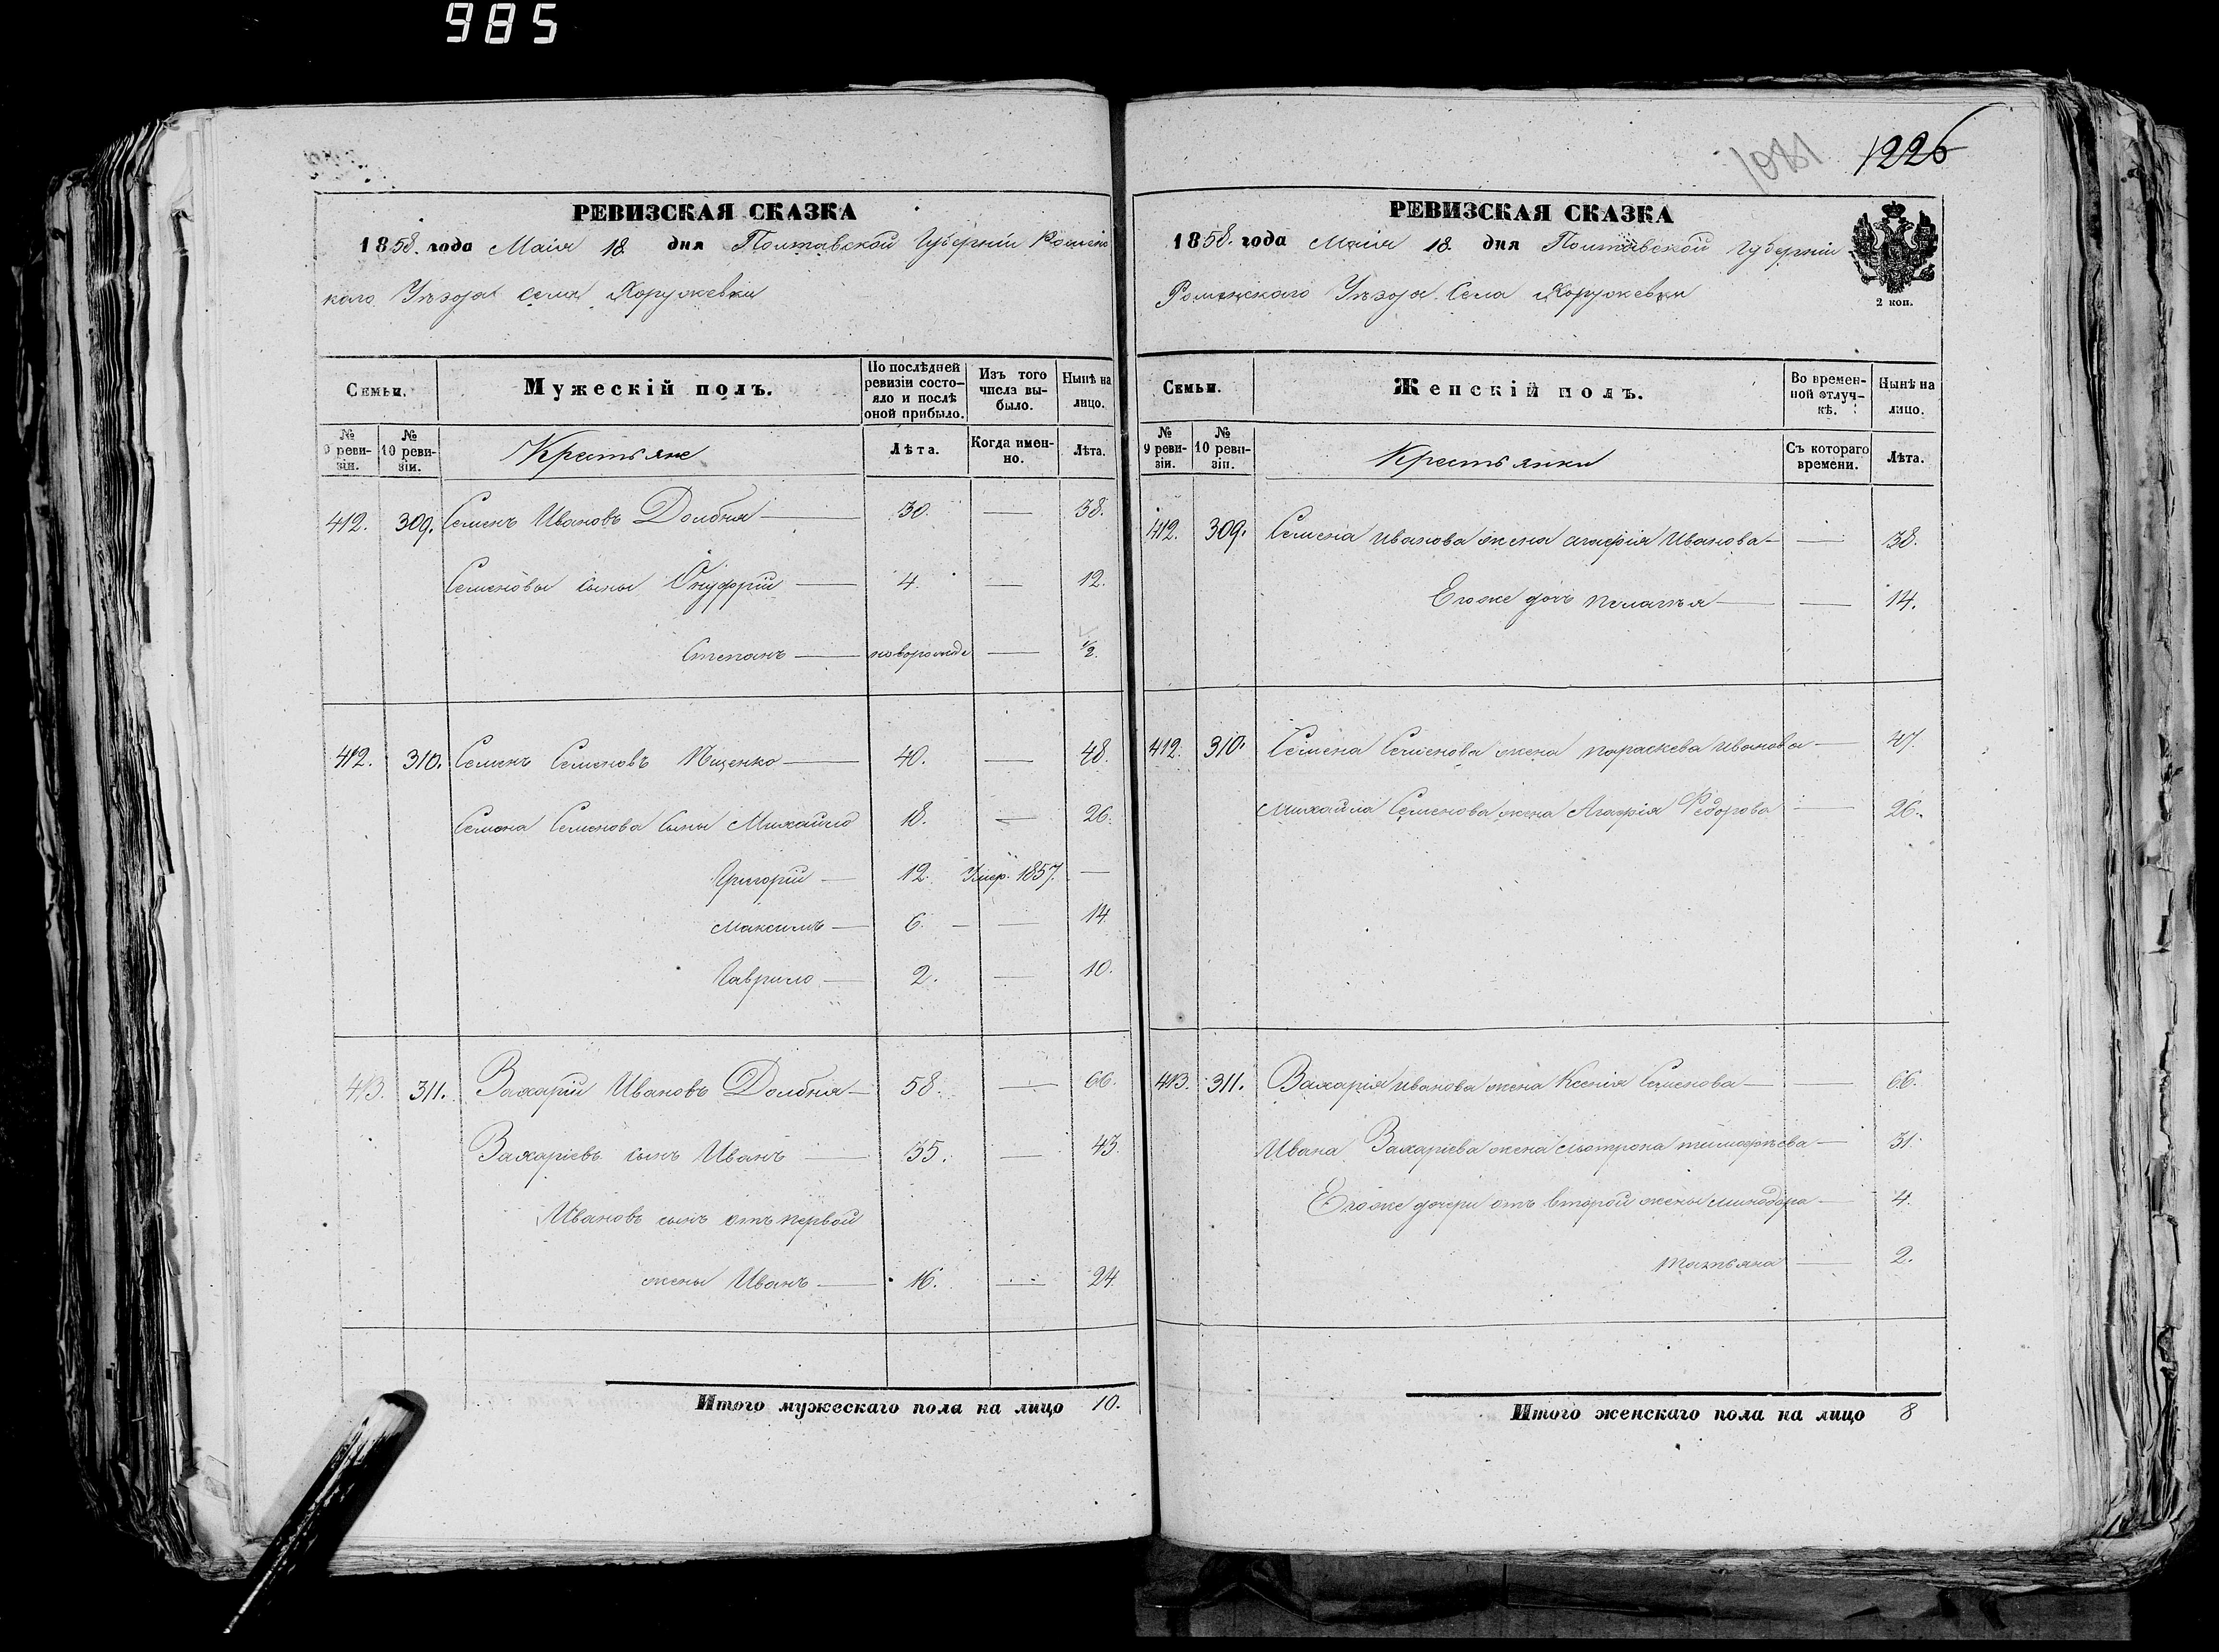 985
РЕВИЗСКАЯ СКАЗКА
1858. года Маія 18. дня Полтавской Губерніи Роменс
каго Уѣзда села Хоружевки
Семьи. Мужескій полъ. По послѣдней ревизіи состояло и послѣ оной прибыло. Изъ того числа выбыло. Нынѣ на лицо.
№ 9 ревизіи. № 10 ревизіи. Крестьяне Лѣта. Когда именно. Лѣта.
412. 309. Семенъ Ивановъ Долбня — 30. — 38.
Семеновы сыны Онуфрій — 4. — 12.
Степанъ — новорожде — 1/2.
412. 310. Семенъ Семеновъ Ищенко — 40. — 48.
Семена Семенова сыны Михайло 18. — 26.
Григорій — 12. Умер. 1857. —
Максимъ — 6. — — 14.
Гаврило — 2. — 10.
413. 311. Захарій Ивановъ Долбня — 58. — 66.
Захаріевъ сынъ Иванъ — 35. — 43.
Ивановъ сынъ отъ первой
жены Иванъ — 16. — 24.
Итого мужескаго пола на лицо 10.
1081 1226
РЕВИЗСКАЯ СКАЗКА
1858. года Маія 18. дня Полтавской Губерніи
Роменскаго Уѣзда Села Хоружевки
2 коп.
Семьи. Женскій полъ. Во временной отлучкѣ. Нынѣ на лицо.
№ 9 ревизіи. № 10 ревизіи. Крестьянки Съ котораго времени. Лѣта.
412. 309. Семена Иванова жена Агафія Иванова — — 38.
Его же дочь Пелагѣя — — 14.
412. 310. Семена Семенова жена Параскева Иванова — 47.
Михайла Семенова жена Агафія Федорова — 26.
413. 311. Захарія Иванова жена Ксенія Семенова — — 66.
Ивана Захаріева жена Мотрона Тимофѣева — 31.
Его же дочери отъ второй жены Минодора — 4.
Татьяна — 2.
Итого женскаго пола на лицо 8